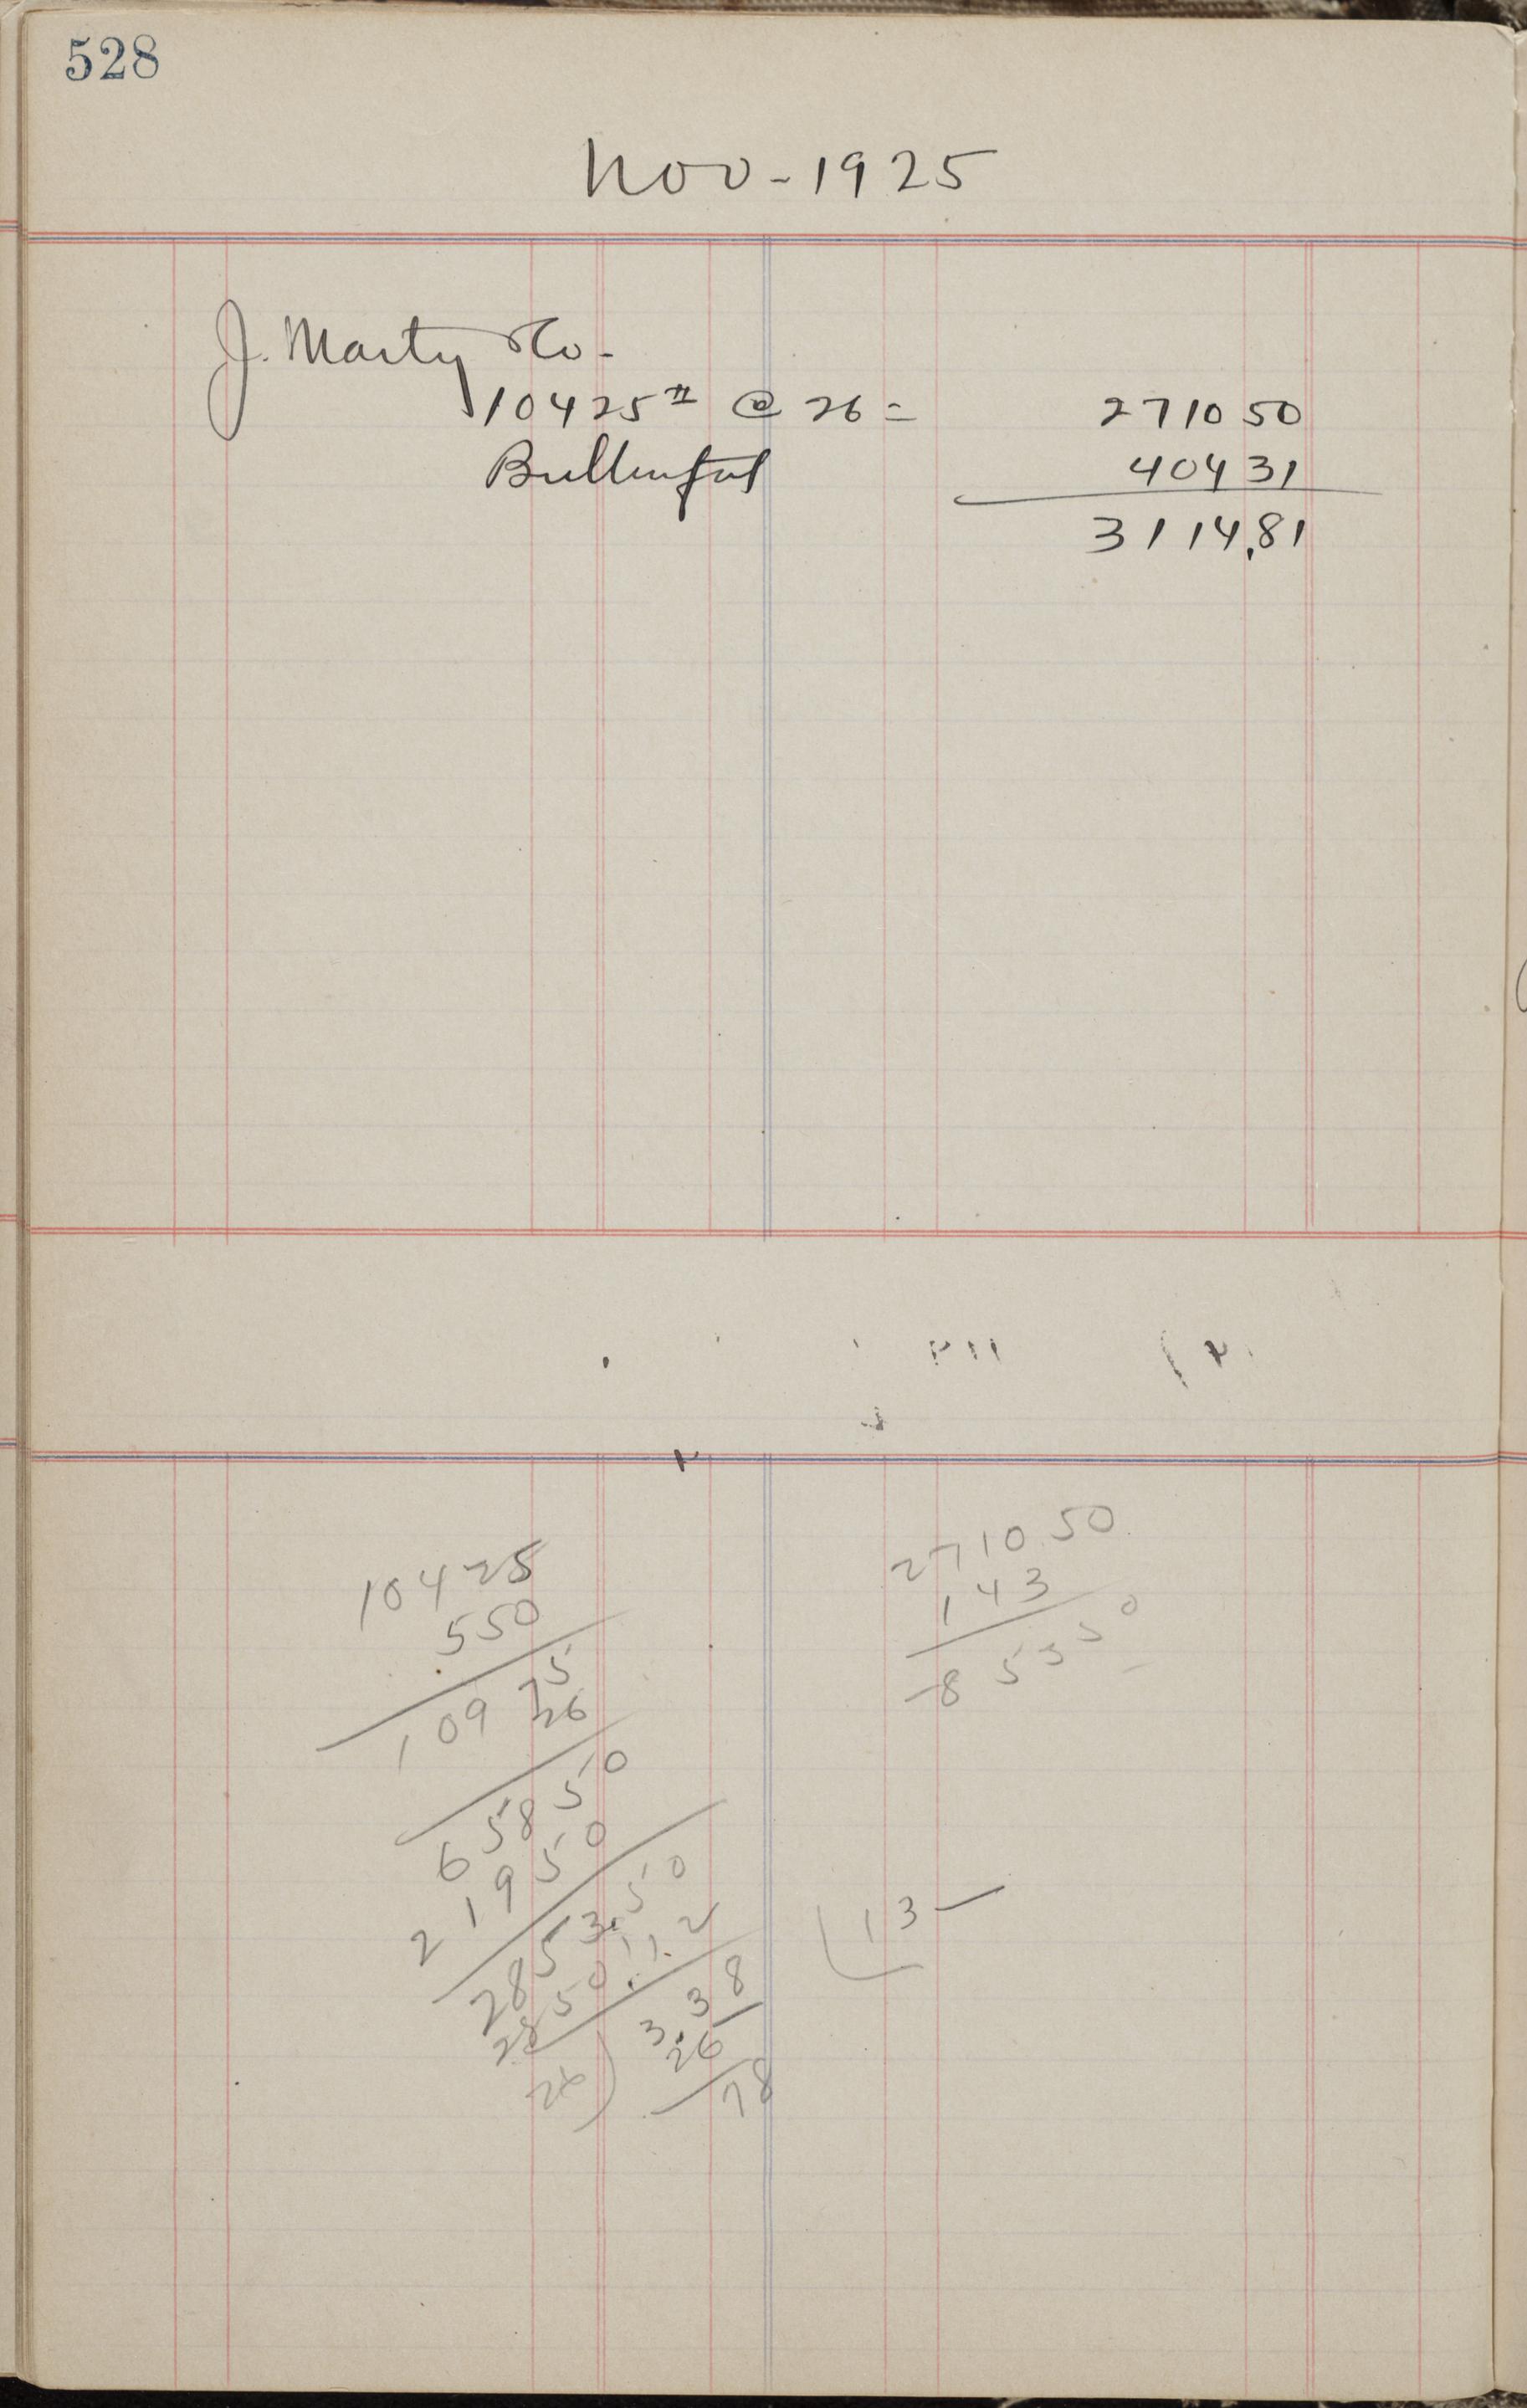 528
Nov - 1925
J. Marty & Co -
10425 # @ 26 = 2710 50
Butterfat 404 31
3114.81
10425
550
10975
26
65850
21950
2853.50
2850.12
26) 3.38
26
78
2710 50
143
13 -